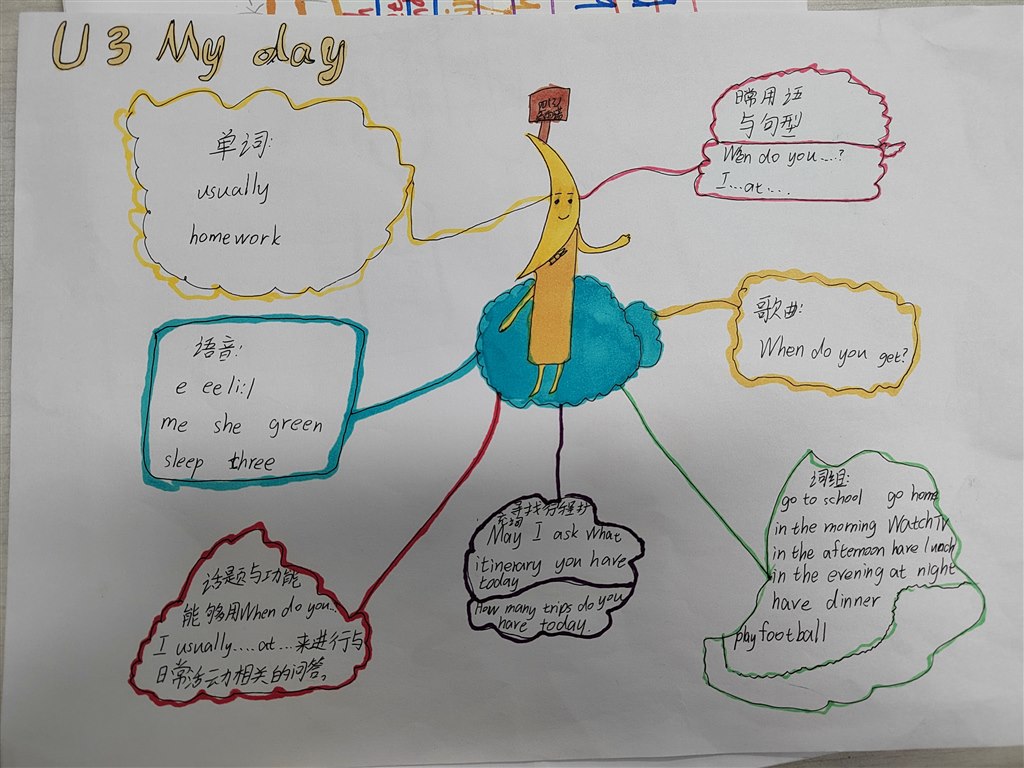 U 3 My day
单词:
usually
homework
日常用语
与句型
When do you....?
I...at....
歌曲:
When do you get?
语音:
e ee |i:|
me she green
sleep three
话题与功能
能够用When do you..
I usually....at...来进行与
日常活动相关的问答。
May I ask what
itinerary you have
today
How many trips do you
have today.
词组:
go to school go home
in the morning Watch TV
in the afternoon have lunch
in the evening at night
have dinner
play football